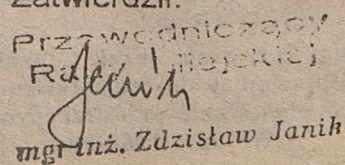 Zatwierdził:
Przewodniczący
Rady Miejskiej
Janik
mgr inż. Zdzisław Janik